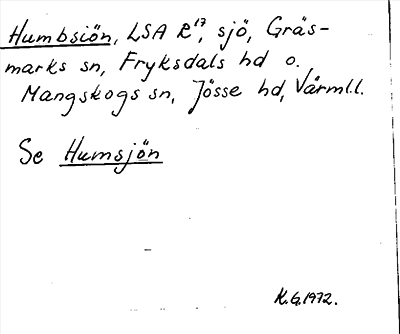 Humbsiön, LSA R¹⁷, sjö, Gräs-
marks sn, Fryksdals hd o.
Mangskogs sn, Jösse hd, Värml.l.
Se Humsjön
K.G.1972.